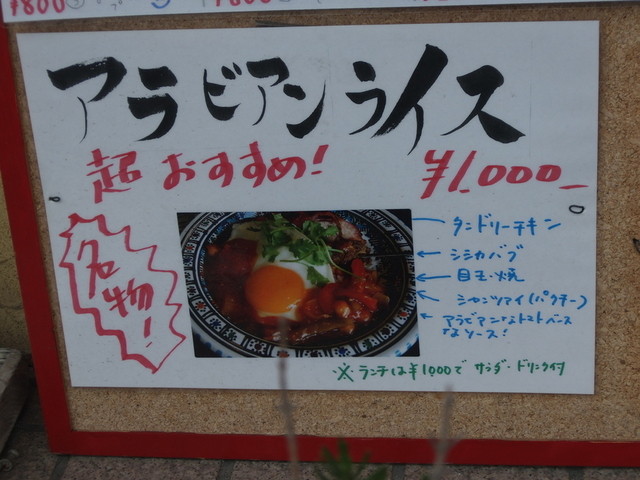 ¥800
アラビアンライス
超おすすめ!
¥1,000-
名物!
タンドリーチキン
シシカバブ
目玉焼
シャンツァイ(パクチー)
アラビアンなトマトベース
なソース!
※ランチは¥1000で サラダ・ドリンク付